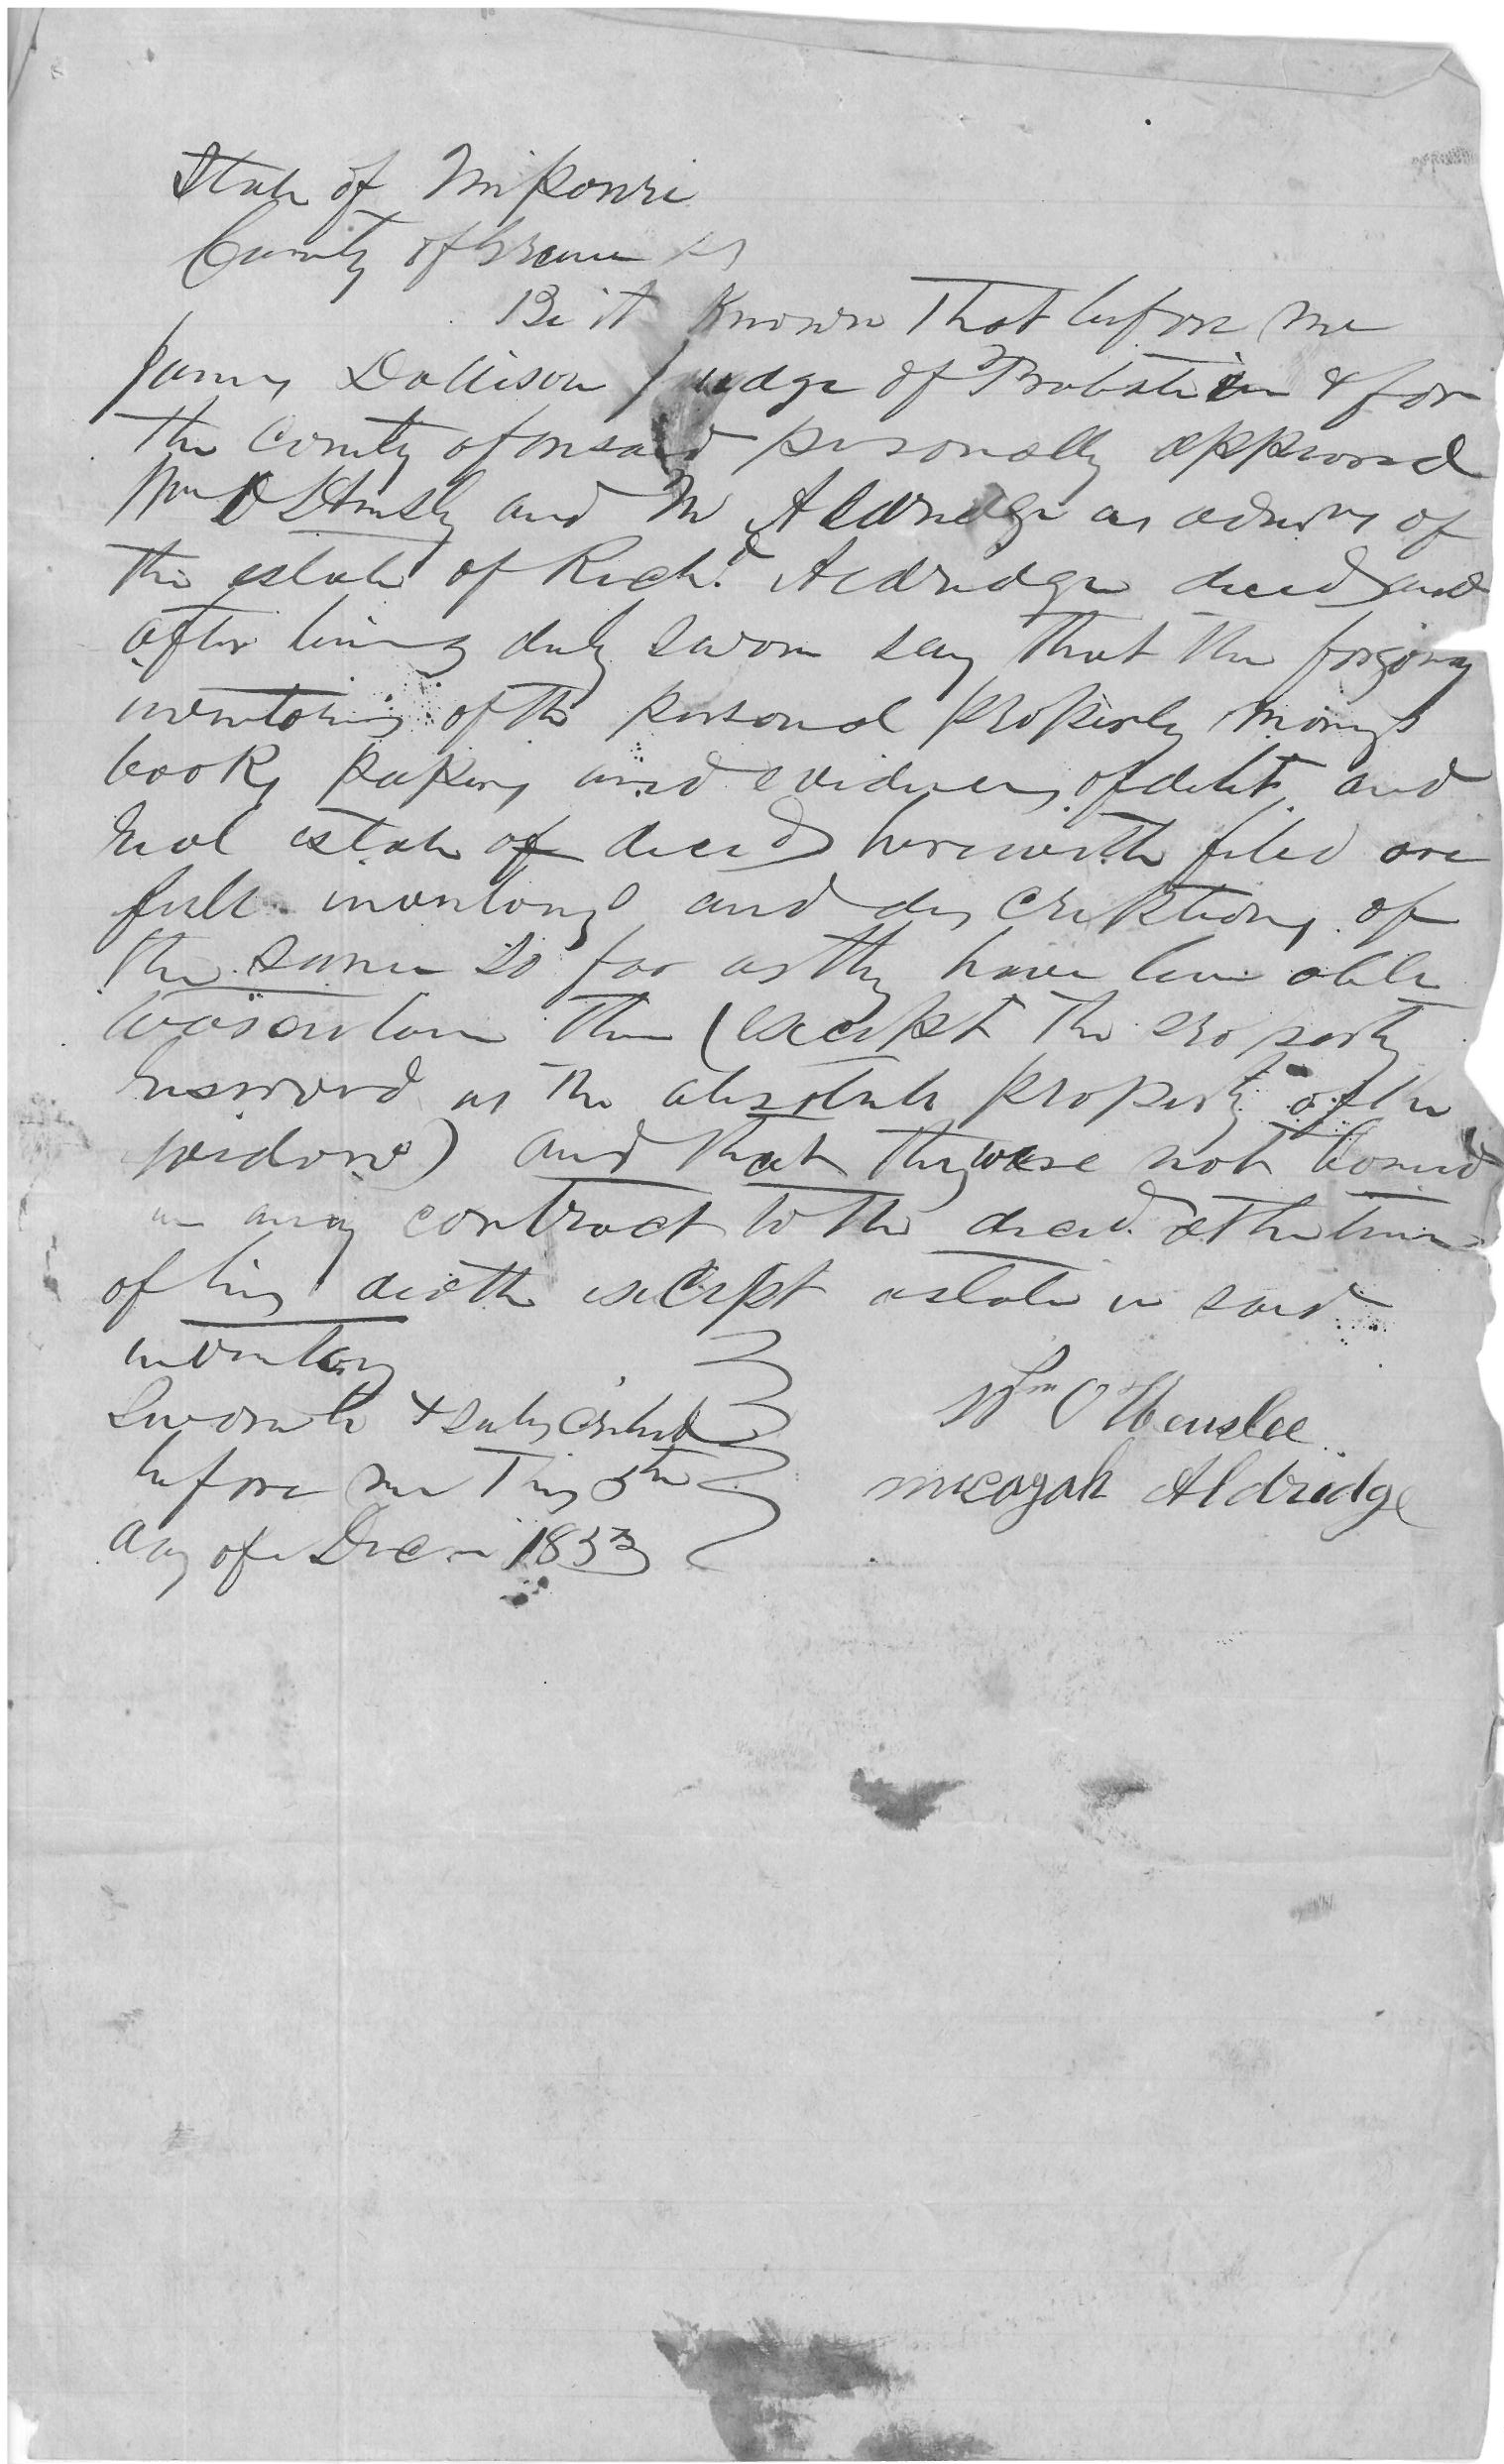 State of Missouri
County of Greene ss
Be it Known That before me
James Dollison Judge of Probate in & for
the County aforesaid personally appeared
Wm O Hensly and M Aldridge as admrs of
the estate of Richd Aldridge decd and
after being duly sworn say that the forgoing
inventories of the personal property moneys
books papers and evidences of debt and
real estate of decd herewith filed are
full inventorys and descriptions of
the same so far as they have been able
to ascertain them (except the property
reserved as the absolute property of the
widow) and that they were not bound
in any contract to the decd at the time
of his death except as state in said
inventory
Sworn to & subscribed
before me This 5th
day of Decm
Wm O Henslee
Micagah Aldridge